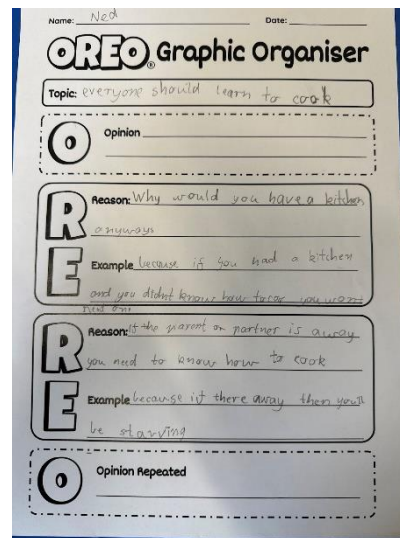 Name: Ned Date:
OREO® Graphic Organiser
Topic: everyone should learn to cook
O
Opinion
R
Reason: Why would you have a kitchen
anyways
E
Example because if you had a kitchen
and you didnt know how to you want
need one
R
Reason: if the parent or partner is away
you need to know how to cook
E
Example because if there away then you'll
be starving
O
Opinion Repeated